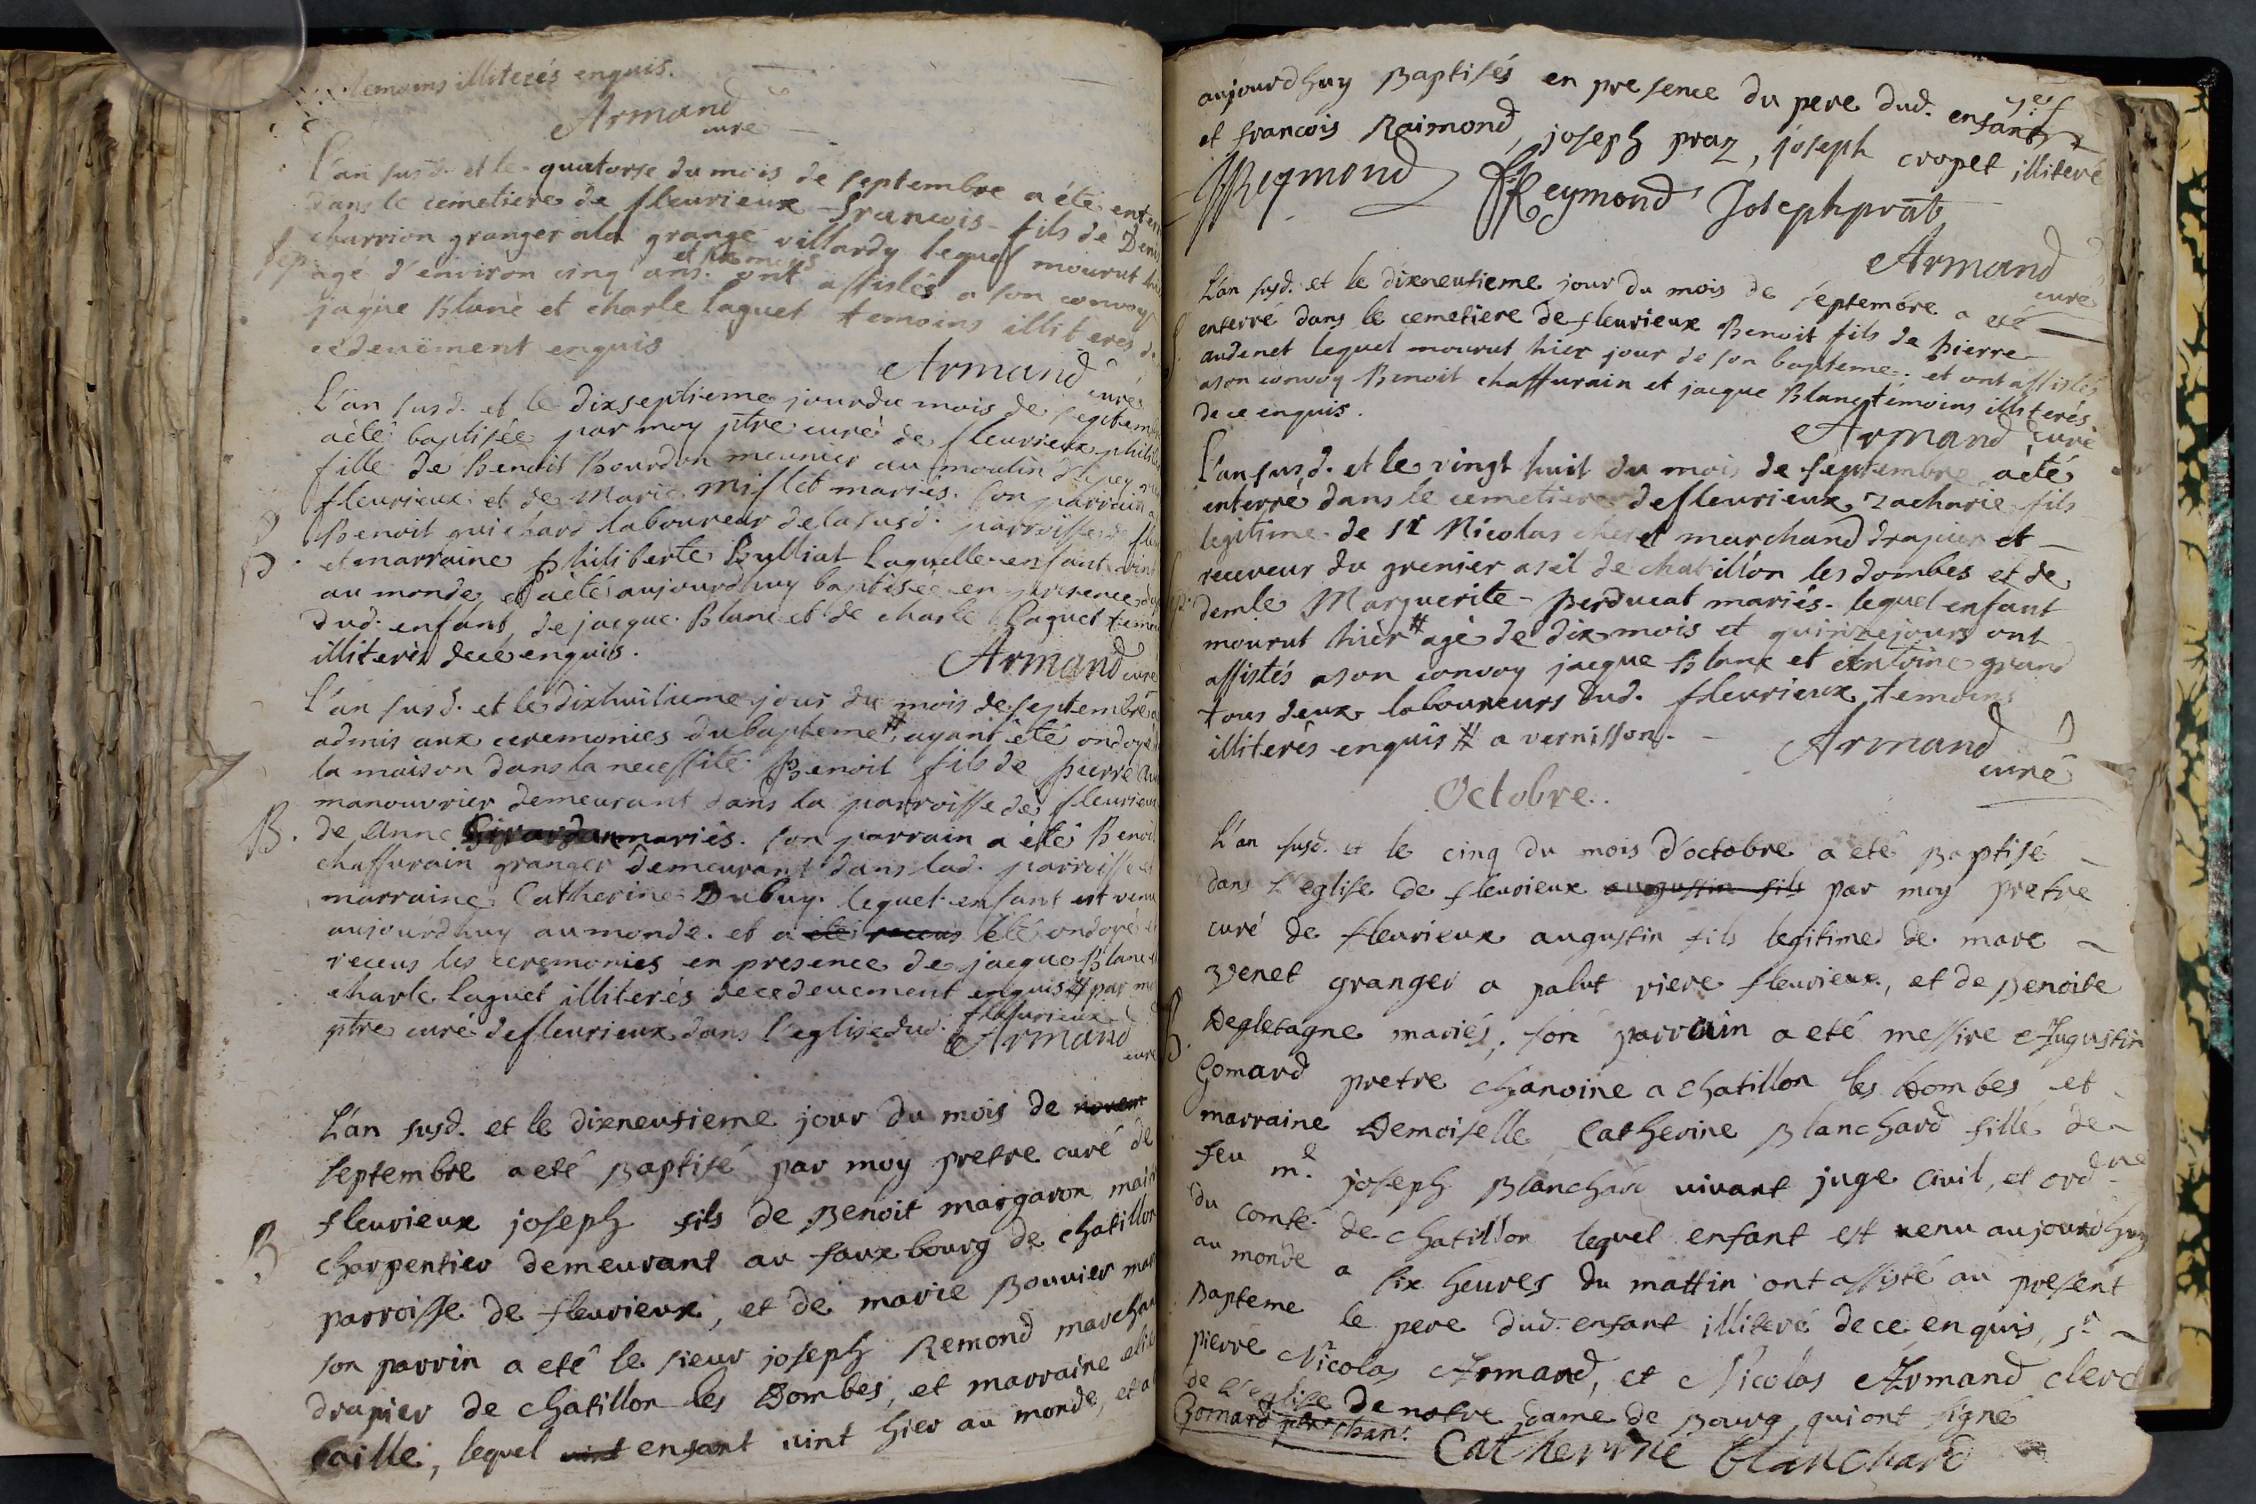 temoins illiterés enquis.
Armand
curé
L'an susd. et le quatorse du mois de septembre a été enterré
dans le cimetiere de fleurieux francois fils de Denis
charrion granger ala grange villardy lequel mourut hier
et six mois
sep agé d'environ cinq ans. ont assistés a son convoy
jaque Blanc et charle laguet temoins illiterés de
cedeuëment enquis
Armand
curé
L'an susd. et le dixseptieme jour du mois de septembre
aété baptisée par moy ptre curé de fleurieux philib
fille de Benoit Bourdon meunier au moulin
fleurieux et de Marie Miflet mariés. son parrain a
Benoit guichard laboureur de lasusd. parroisse de fleu
B. et marraine philiberte Bulliat laquelle enfant vint
au monde et aété aujourdhuy baptisée en presence du
dud. enfant, de jacque Blanc et de charle laguet temoi
illiterés decé enquis.
Armand curé
L'an susd. et le dixhuitieme jour du mois de septembre a
admis aux ceremonies du bapteme # ayant été ondoyé
la maison dans la necessité Benoit fils de pierre Au
manouvrier demeurant dans la parroisse de fleurieux
B. de Anne mariés. son parrain a été Benoit
chaffurain granger demeurant dans lad. parroisse et
marraine Catherine Dubuy. lequel enfant est venu
aujourdhuy au monde. et a été receus été ondoyé et
receus les ceremonies en presence de jacque Blanc et
charle laguet illiterés decedeuement enquis # par mo
ptre curé de fleurieux dans l'eglise dud. fleurieux
Armand
curé
L'an susd. et le dixneufieme jour du mois de novem
septembre a eté Baptisé par moy pretre curé de
fleurieux joseph fils de Benoit margaron mait
B charpentier demeurant au fauxbourg de chatillon
parroisse de fleurieux, et de marie Bouvier mar
son parrin a eté le sieur joseph Remond marchan
drapier de chatillon les Dombes, et marraine
Caille, lequel vint enfant vint hier au monde, et a
aujourdhuy Baptisés en presence du pere dud. enfant
et francois Raimond, joseph praz, joseph cropet illiteré
JReymond FReymond Joseph prat
Armand
curé
L'an susd. et le dixneufieme jour du mois de septembre a eté
enterré dans le cemetiere de fleurieux Benoit fils de pierre
audenet lequel mourut hier jour de son bapteme. et ont assistés
a son convoy Benoit chaffurain et jacque Blanc temoins illiterés
de ce enquis.
Armand curé
L'an susd. et le vingt huit du mois de septembre aété
enterré dans le cemetiere de fleurieux zacharie fils
legitime de sr Nicolas cheret marchand drapier et
receveur du grenier asel de chatillon les dombes et de
demle Marguerite perducat mariés. lequel enfant
mourut hièr # agé de dix mois et quinze jours ont
assistés a son convoy jacque Blanc et Antoine grand
tous deux laboureurs dud. fleurieux temoins
illiterés enquis # a vernisson.
Armand
curé
Octobre.
L'an susd. et le cinq du mois d'octobre a eté Baptisé
dans l'eglise de fleurieux augustin fils par moy pretre
curé de fleurieux augustin fils legitime de marc
Venet granger a palut riere fleurieux, et de Benoite
B. Degletagne mariés, son parrain a eté messire Augustin
Gomard pretre chanoine a chatillon les Dombes et
marraine Demoiselle Catherine Blanchard fille de
feu mr. joseph Blanchard vivant juge civil, et ordre
du comté de chatillon lequel enfant est venu aujourdhuy
au monde a six heures du mattin ont assisté au present
Bapteme le pere dud. enfant illiteré de ce enquis, sr
pierre Nicolas Armand, et Nicolas Armand clerc
de l'eglise de notre Dame de Bourg qui ont signé
Gomard ptre chan.
Catherine blanchard